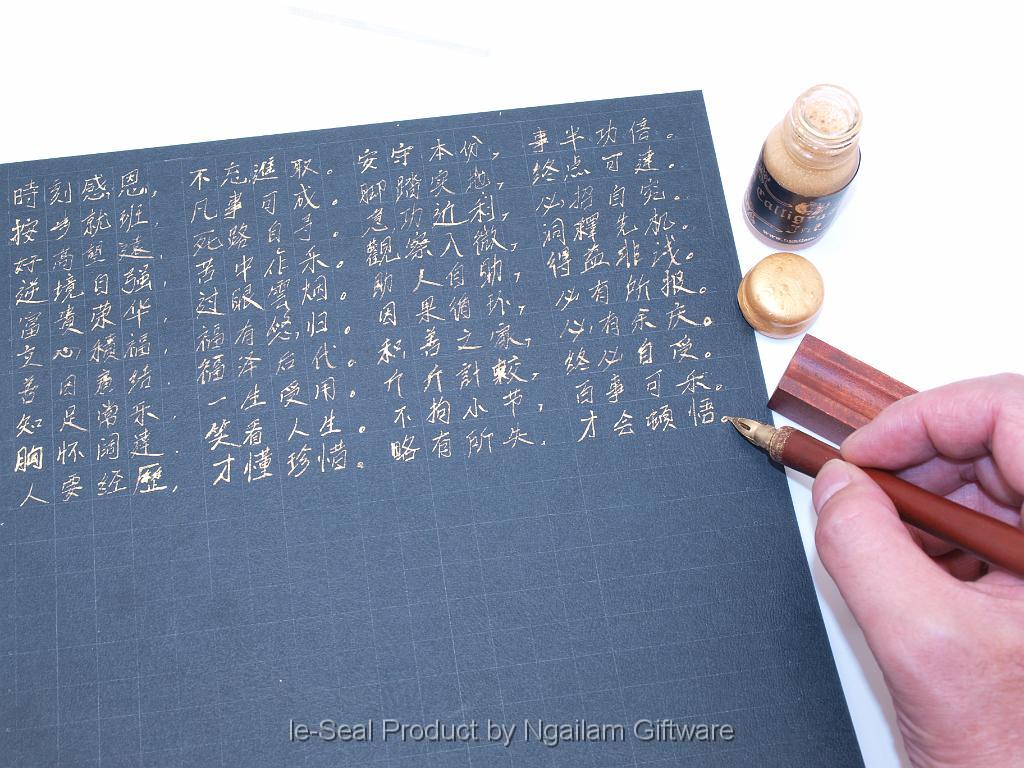 時刻感恩，不忘進取。安守本份，事半功倍。
按步就班，凡事可成。脚踏实地，终点可達。
好高遠，死路自。急功近利，必招自究。
逆境自强，苦中作乐。觀察入微，洞釋先机。
富贵荣华，过眼雲烟。助人自助，得益非浅。
心積福，福有悠归。因果循环，必有所报。
善因廣结，福泽后代。积善之家，必有余庆。
知足常乐，一生受用。斤斤計較，终必自受。
胸怀阔達，笑看人生。不拘小节，百事可乐。
人要经歷，才懂珍惜。略有所失，才会顿悟。
le-Seal Product by Ngailam Giftware